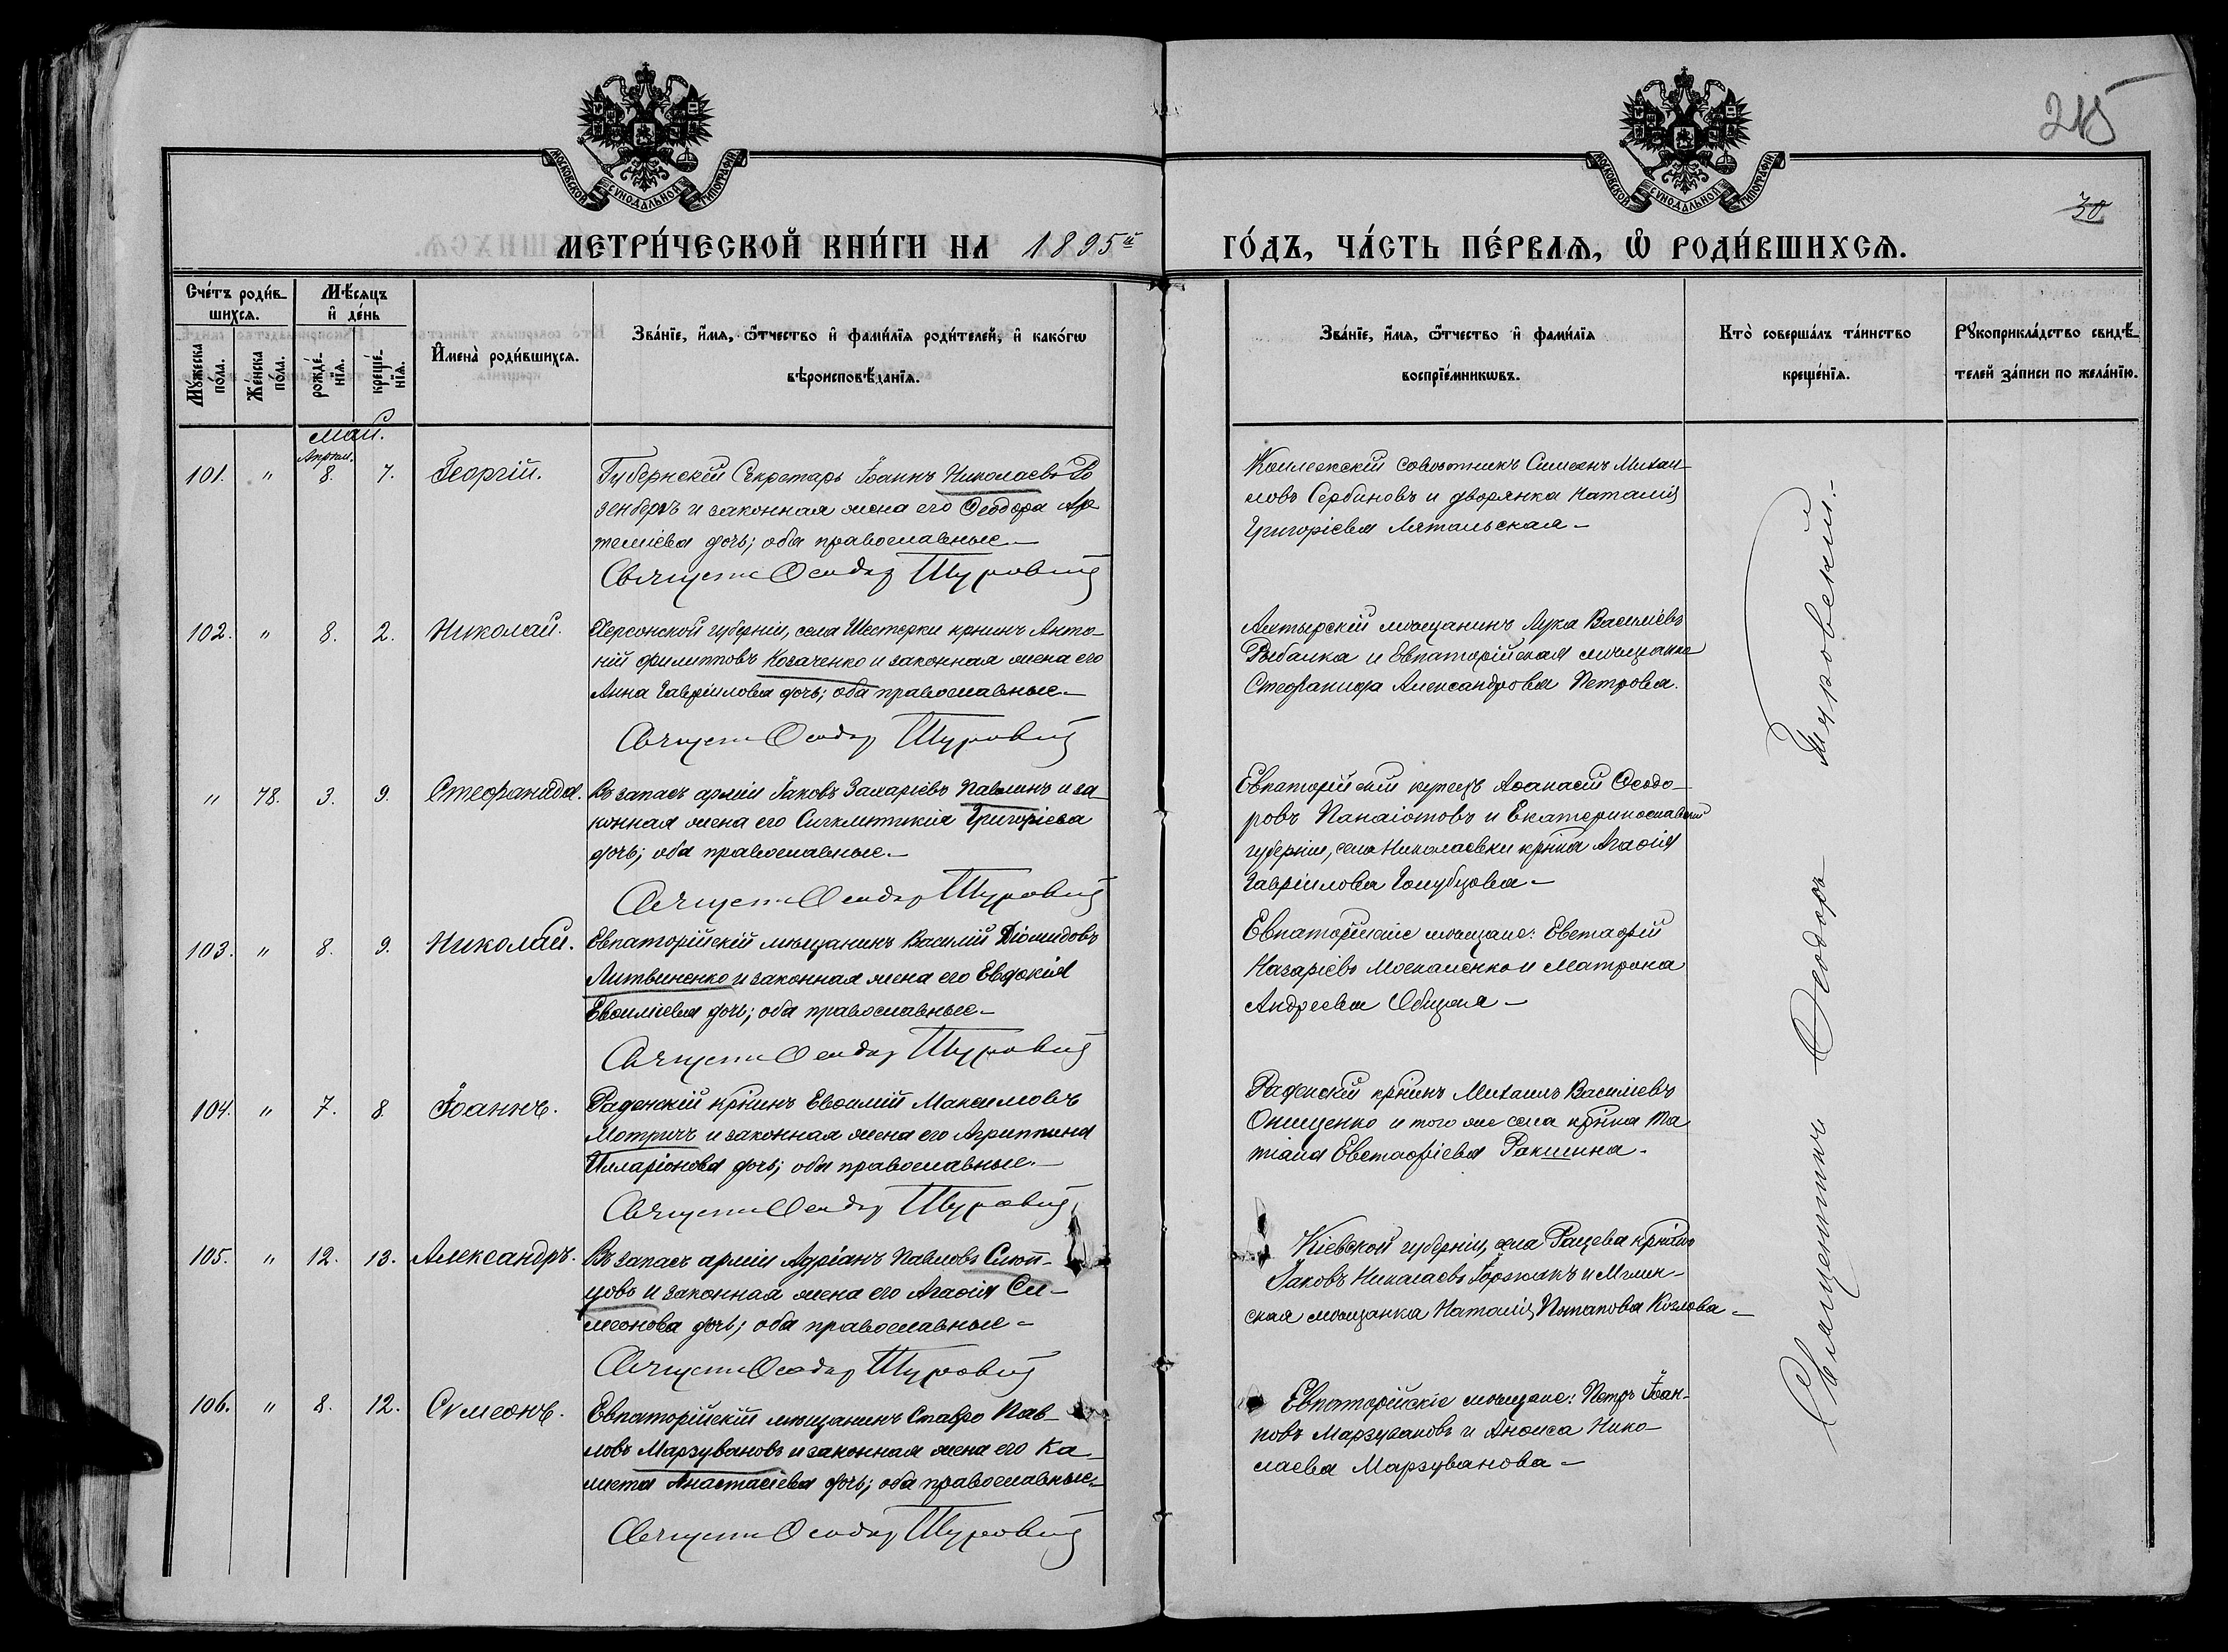 МОСКОВСКОЙ СѴНОДАЛЬНОЙ ТИПОГРАФІИ
МОСКОВСКОЙ СѴНОДАЛЬНОЙ ТИПОГРАФІИ
215
30
МЕТРИ́ЧЕСКОЙ КНИ́ГИ НА 1895й ГО́ДЪ, ЧА́СТЬ ПЕ́РВАѦ, Ѡ РОДИ́ВШИХСѦ.
Сче́тъ роди́в-
шихсѧ.
Мꙋ́жеска по́ла.
Же́нска по́ла.
Мѣ́сяцъ
и҆ де́нь
рожде́-нїѧ.
креще́-нїѧ.
И҆мена̀ роди́вшихсѧ.
Зва́нїе, и҆́мѧ, ѻ҆́тчество и҆ фами́лїѧ роди́телей, и҆ како́гѡ
вѣроисповѣ́данїѧ.
Зва́нїе, и҆́мѧ, ѻ҆́тчество и҆ фами́лїѧ
воспрїе́мникѡвъ.
Кто̀ соверша́лъ та́инство
креще́нїѧ.
Рꙋкоприкла́дство свидѣ́-
телей за́писи по жела́нїю.
Май.
Апрѣл.
101. " 8. 7. Георгій.
Губернскій Секретарь Іоаннъ Николаевъ Ро
зенбергъ и законная жена его Ѳеодора Ар
теміева дочь; оба православные.—
Священ Ѳеодор Туровскій
Коллежскій совѣтникъ Симеонъ Михаи-
ловъ Сербиновъ и дворянка Наталія
Григоріева Лятальская —
102. " 8. 2. Николай.
Херсонской губерніи, села Шестерки кр̃нинъ Анто-
ній Филипповъ Козаченко и законная жена его
Анна Гавріилова дочь; оба православные.—
Священ Ѳеодор Туровскій
Ахтырскій мѣщанинъ Лука Василіевъ
Рыбалка и Евпаторійская мѣщанка
Стефанида Александрова Петрова.
" 78. 3. 9. Стефанида.
Въ запасъ арміи Іаковъ Захаріевъ Павлинъ и за-
конная жена его Сигклитикія Григоріева
дочь; оба православные.—
Священ Ѳеодор Туровскій
Евпаторійскій купецъ Аѳанасій Ѳеодо-
ровъ Панаіотовъ и Екатеринославской
губерніи, села Николаевки кр̃нка Агаѳія
Гавріилова Голубцова —
103. " 8. 9. Николай.
Евпаторійскій мѣщанинъ Василій Діомидовъ
Литвиненко и законная жена его Евдокія
Евѳиміева дочь; оба православные.—
Священ Ѳеодор Туровскій
Евпаторійскіе мѣщане: Евстафій
Назаріевъ Москаленко и Матрона
Андреева Общая —
104. " 7. 8. Іоаннъ.
Раденскій кр̃нинъ Евѳимій Максимовъ
Мотричъ и законная жена его Агриппина
Илларіонова дочь; оба православные.—
Священ Ѳеодор Туровскій
Раденскій кр̃нинъ Михаилъ Василіевъ
Онищенко и того же села кр̃нка Та
тіана Евстафіева Ракшина.
105. " 12. 13. Александръ.
Въ запасъ арміи Адріанъ Павловъ Слюн-
цовъ и законная жена его Агаѳія Си-
меонова дочь; оба православные —
Священ Ѳеодор Туровскій
Кіевской губерніи, села Рацева кр̃нинъ
Іаковъ Николаевъ и
ская мѣщанка Наталія Потапова Козлова —
106. " 8. 12. Сѵмеонъ.
Евпаторійскій мѣщанинъ Ставро Пав-
ловъ Марзувановъ и законная жена его Ка
листа Анастасіева дочь; оба православные.—
Священ Ѳеодор Туровскій
Евпаторійскіе мѣщане: Петръ Іоан-
новъ Марзувановъ и Анѳиса Нико-
лаева Марзуванова —
Священникъ Ѳеодоръ Туровскій.—